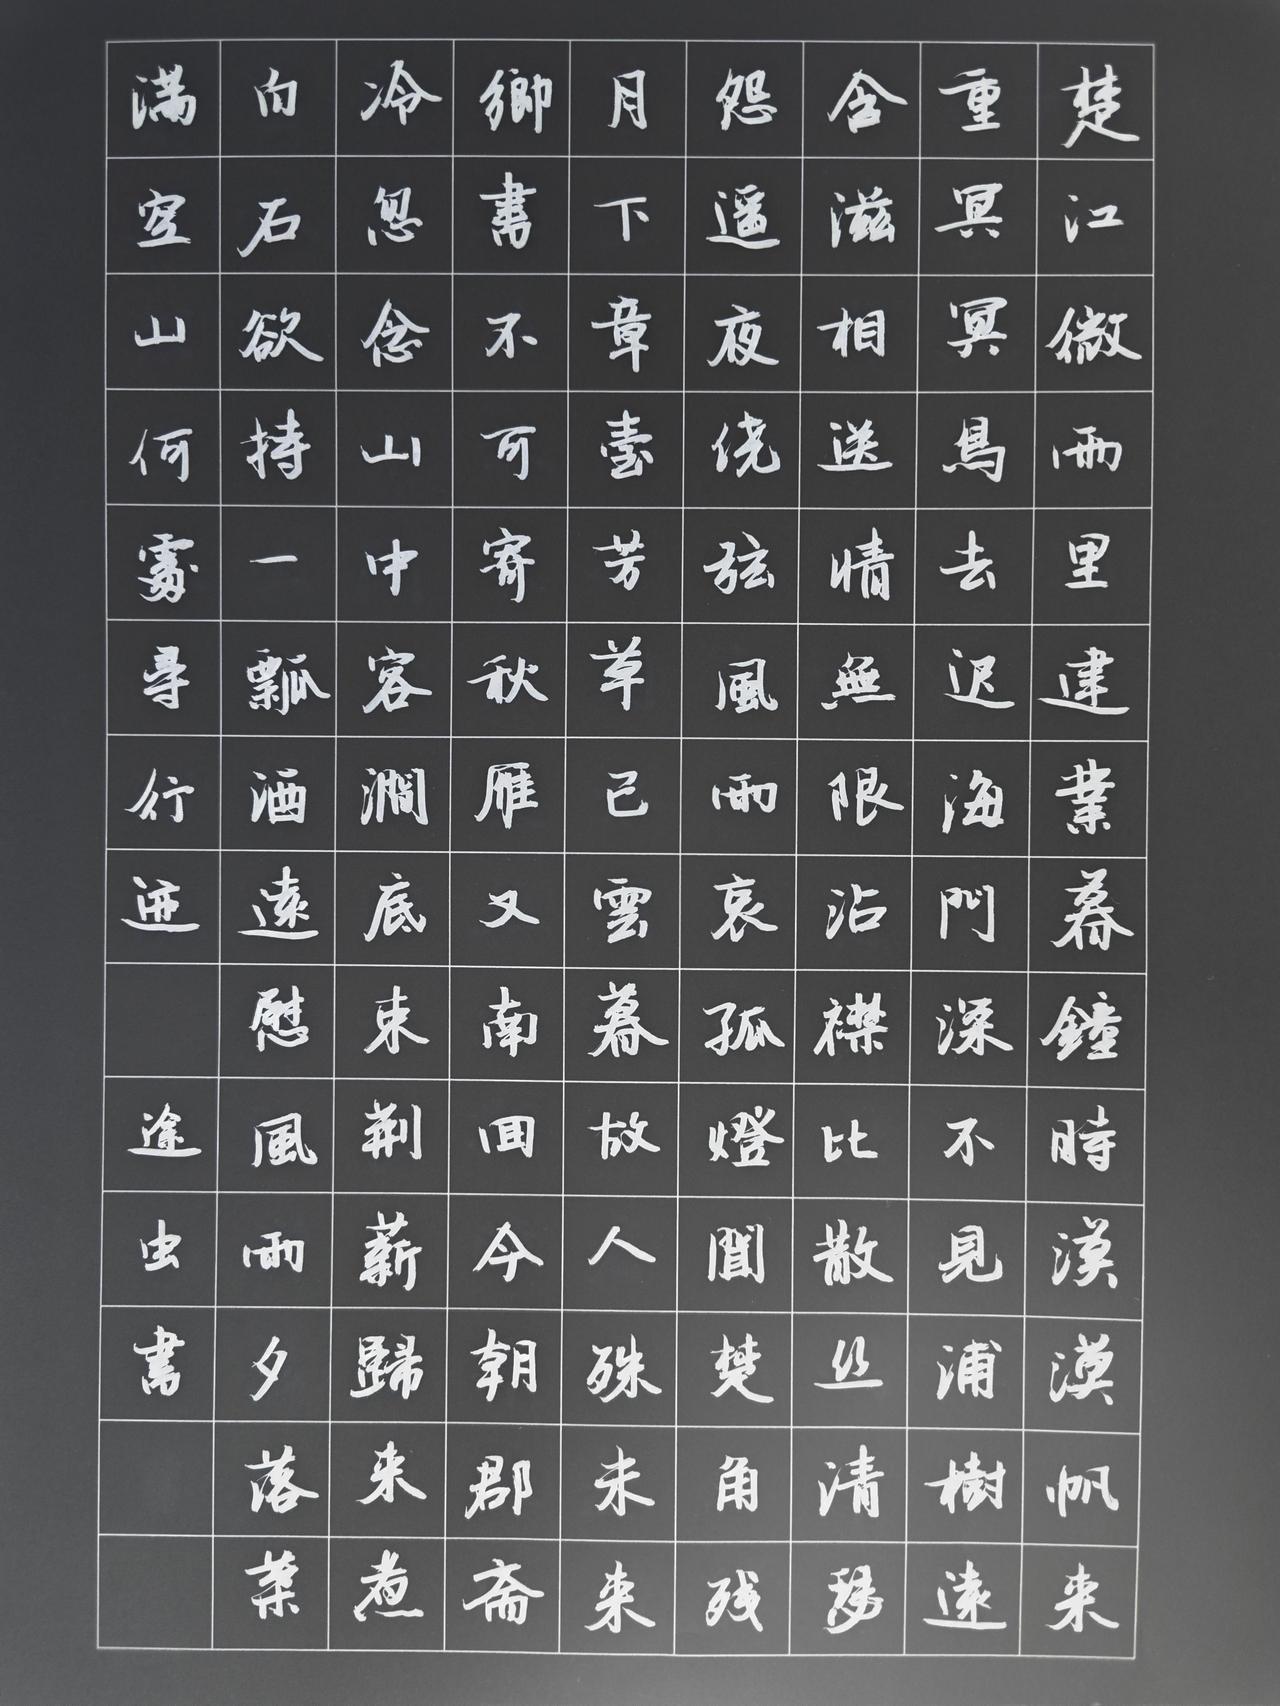 楚江微雨里建業暮鐘時漠漠帆来
重冥冥鳥去迟海門深不見浦樹遠
含滋相送情無限沾襟比散丝清瑟
怨遥夜绕弦風雨哀孤燈聞楚角残
月下章臺芳草已雲暮故人殊未来
鄉書不可寄秋雁又南回今朝郡斋
冷忽念山中客澗底束荆薪歸来煮
白石欲持一瓢酒遠慰風雨夕落葉
满空山何處尋行迹 途虫書